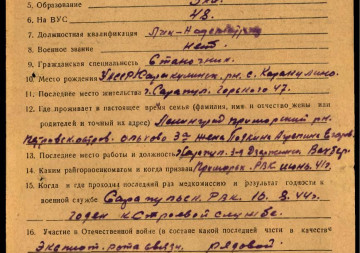 5. Образование
6. На ВУС 48.
7. Должностная квалификация
8. Военное звание нет.
9. Гражданская специальность Станочник.
10. Место рождения УАССР Каракулинск. рн. с. Каракулино.
11. Последнее место жительства г. Сарапул. Горького 47.
12. Где проживает в настоящее время семья (фамилия, имя и отчество жены или
родителей и точный адрес) Ленинград приморский рн.
Петровск. остров. Ольхово 3 жена
13. Последнее место работы и должность г. Сарапул. з-д Дзержинск.
14. Когда и каким райгорвоенкоматом призван РВК. июнь. 41 г.
15. Когда и где проходил последний раз медкомиссию и результат годности к
военной службе Сарапульск. РВК 10. 8. 44 г.
годен к строевой службе.
16. Участие в Отечественной войне (в составе какой последней части и в качестве
рота связи, рядовой.